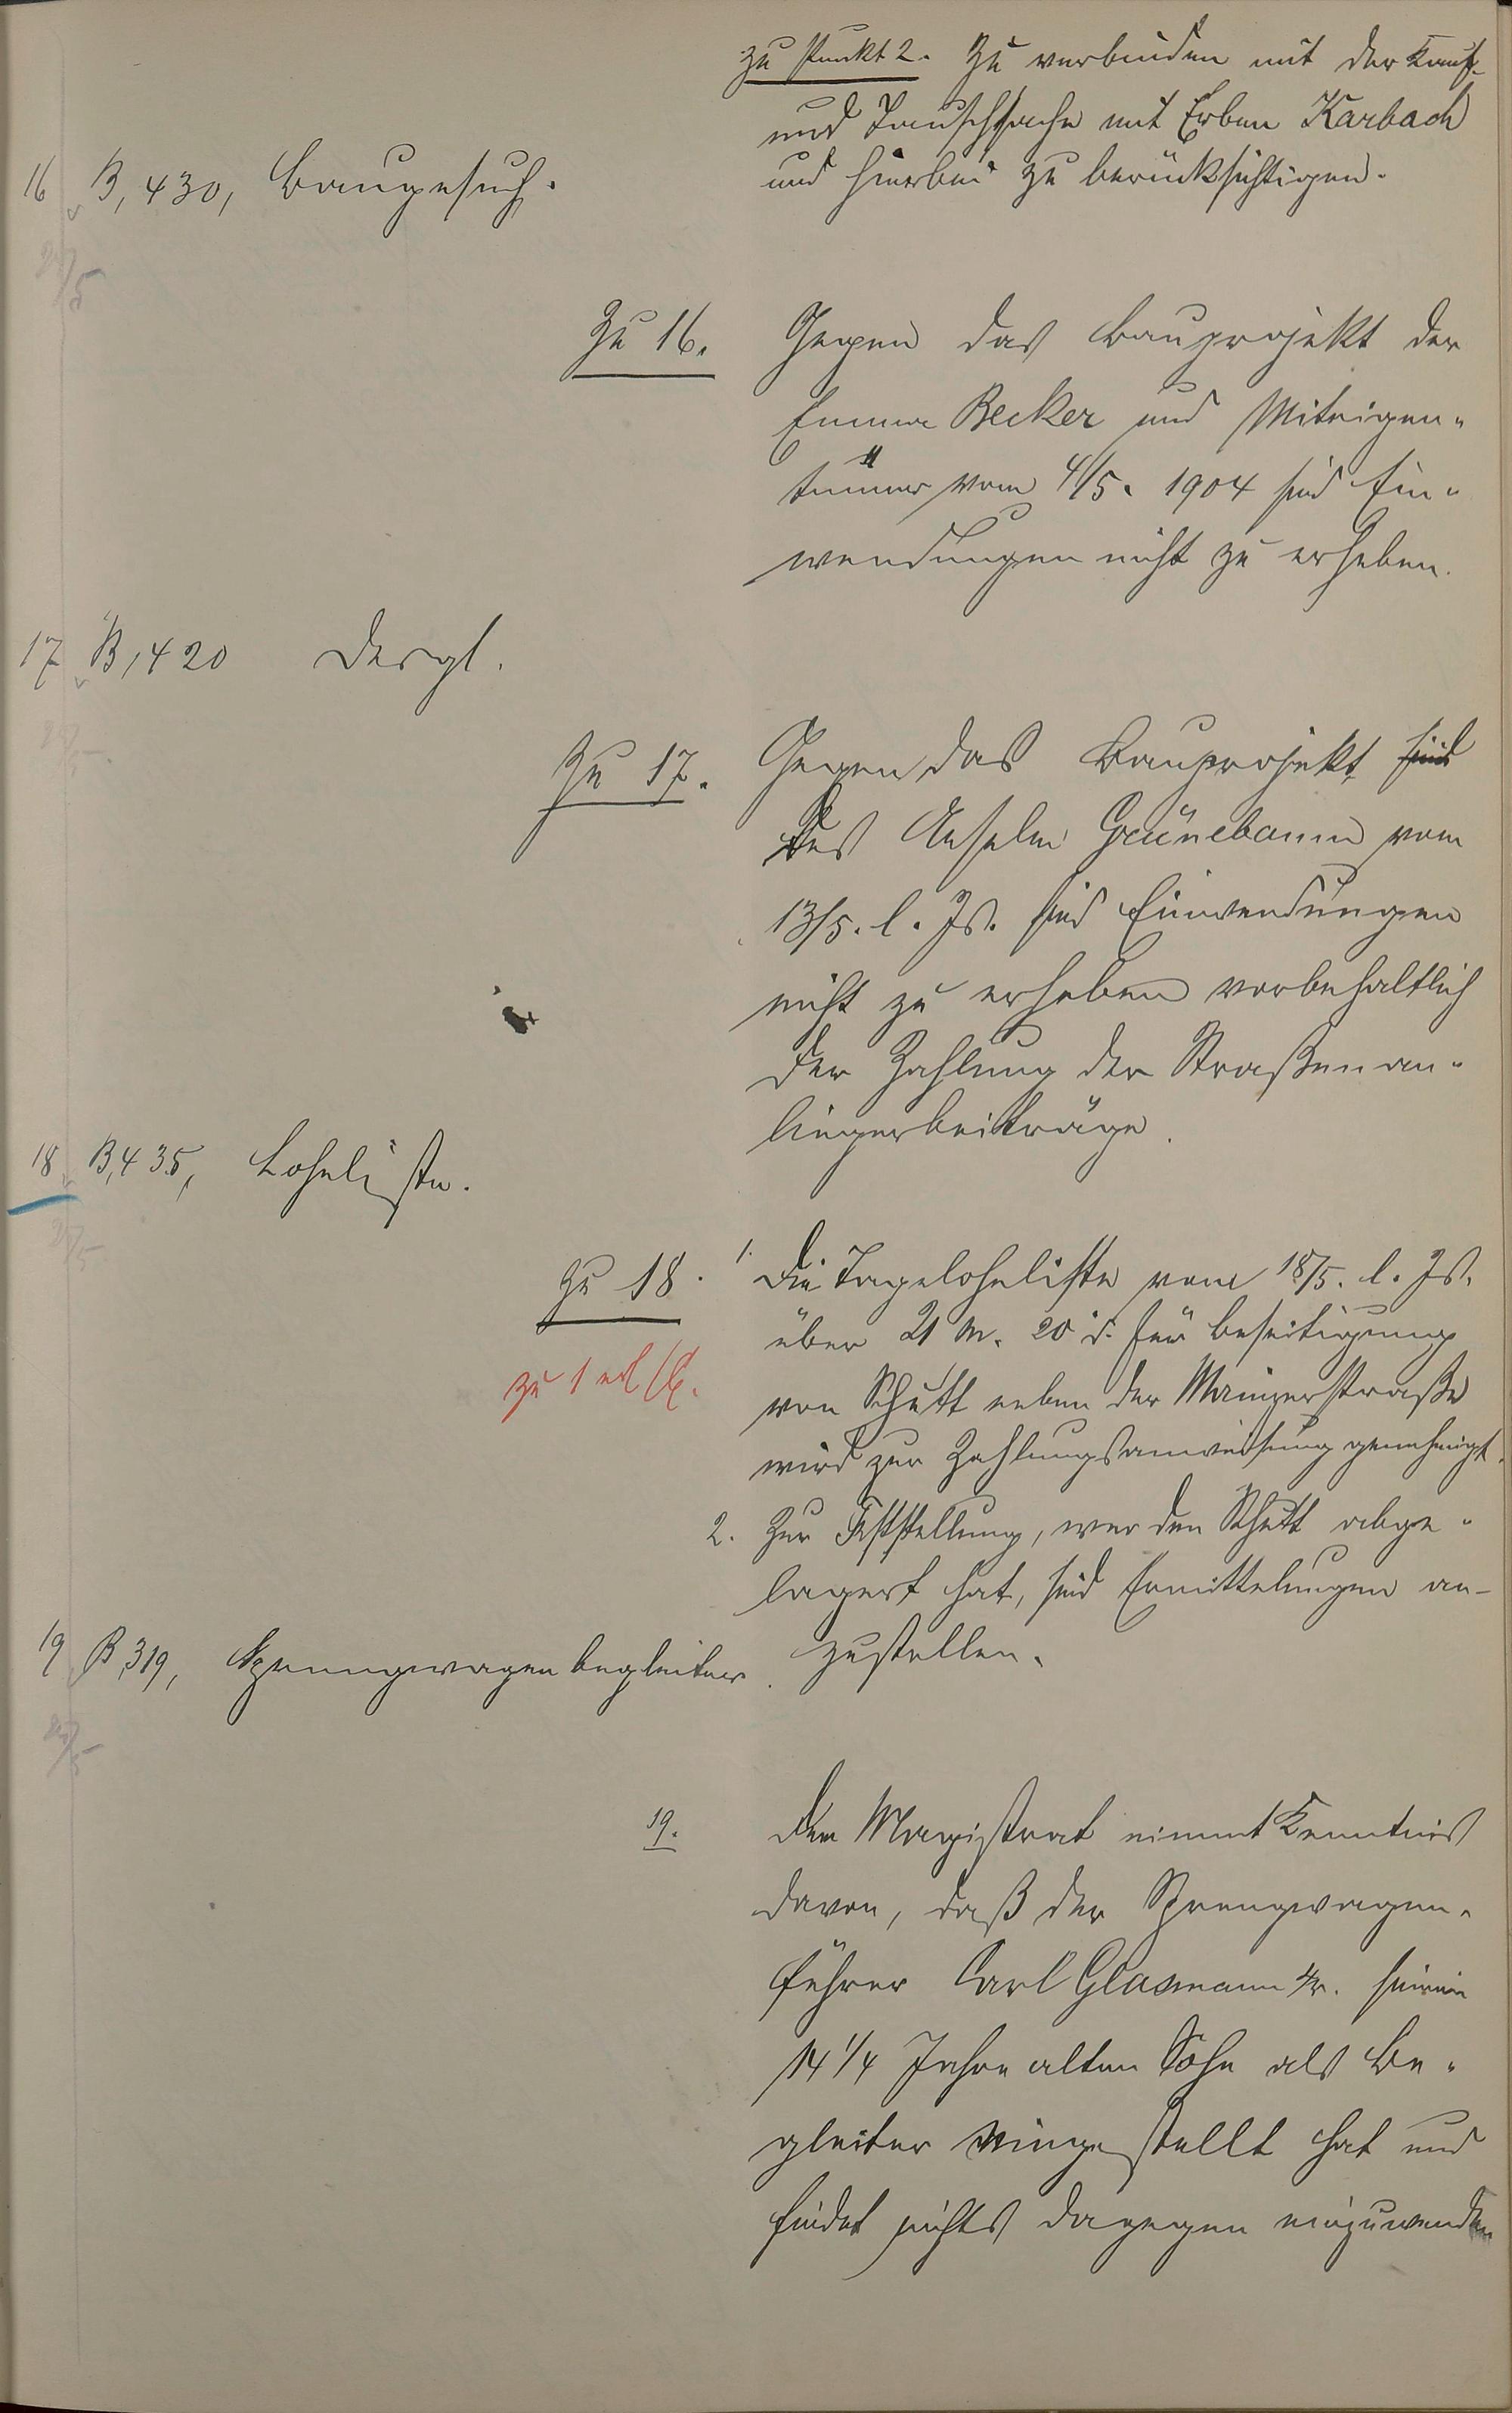 zu Punkt 2. Zu verbinden mit der Kauf-
und Tauschsache mit Erben Karbach
und hierbei zu berücksichtigen.
16 B, 430, Baugesuch.
Zu 16. Gegen das Bauprojekt der
Emma Becker und Miteigen-
tümer vom 4/5. 1904 sind Ein-
wendungen nicht zu erheben.
17 B, 420 Desgl.
Zu 17. Gegen das Bauprojekt sind
des Anselm Grünebaum vom
13/5. l. Js. sind Einwendungen
nicht zu erheben vorbehaltlich
der Zahlung der Straßenan-
liegerbeiträge.
18 B, 435, Lohnliste.
zu 18. 1. Die Tagelohnliste vom 18/5. l. Js.
über 21 M. 20 d. für Beseitigung
zu 1 erl
von Schutt neben der Mainzerstraße
wird zur Zahlungsanweisung genehmigt.
2. Zur Feststellung, wer den Schutt abge-
lagert hat, sind Ermittelungen an-
zustellen.
19 B, 319, Sprengwagenbegleiter.
19. Der Magistrat nimmt Kenntnis
davon, daß der Sprengwagen-
führer Carl Glasmann seinen
14 1/4 Jahre alten Sohn als Be-
gleiter eingestellt hat und
findet nichts dagegen einzuwenden